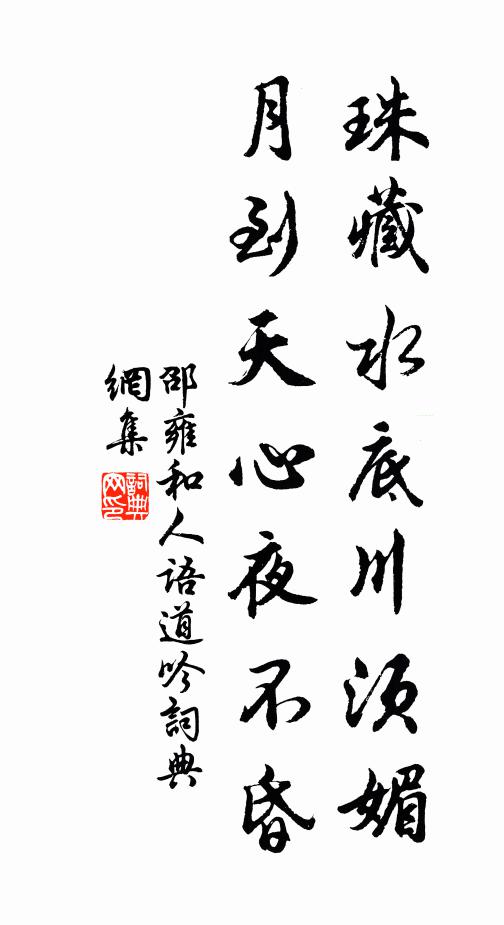 珠藏水底川須媚
月到天心夜不昏
邵雍和人语道吟詞典
網集
詞典
网印